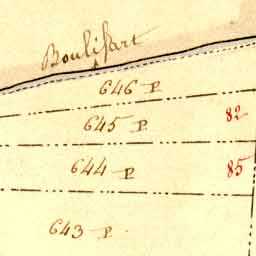 Boulifart
646 P
645 P 82
644 P 85
643 P.